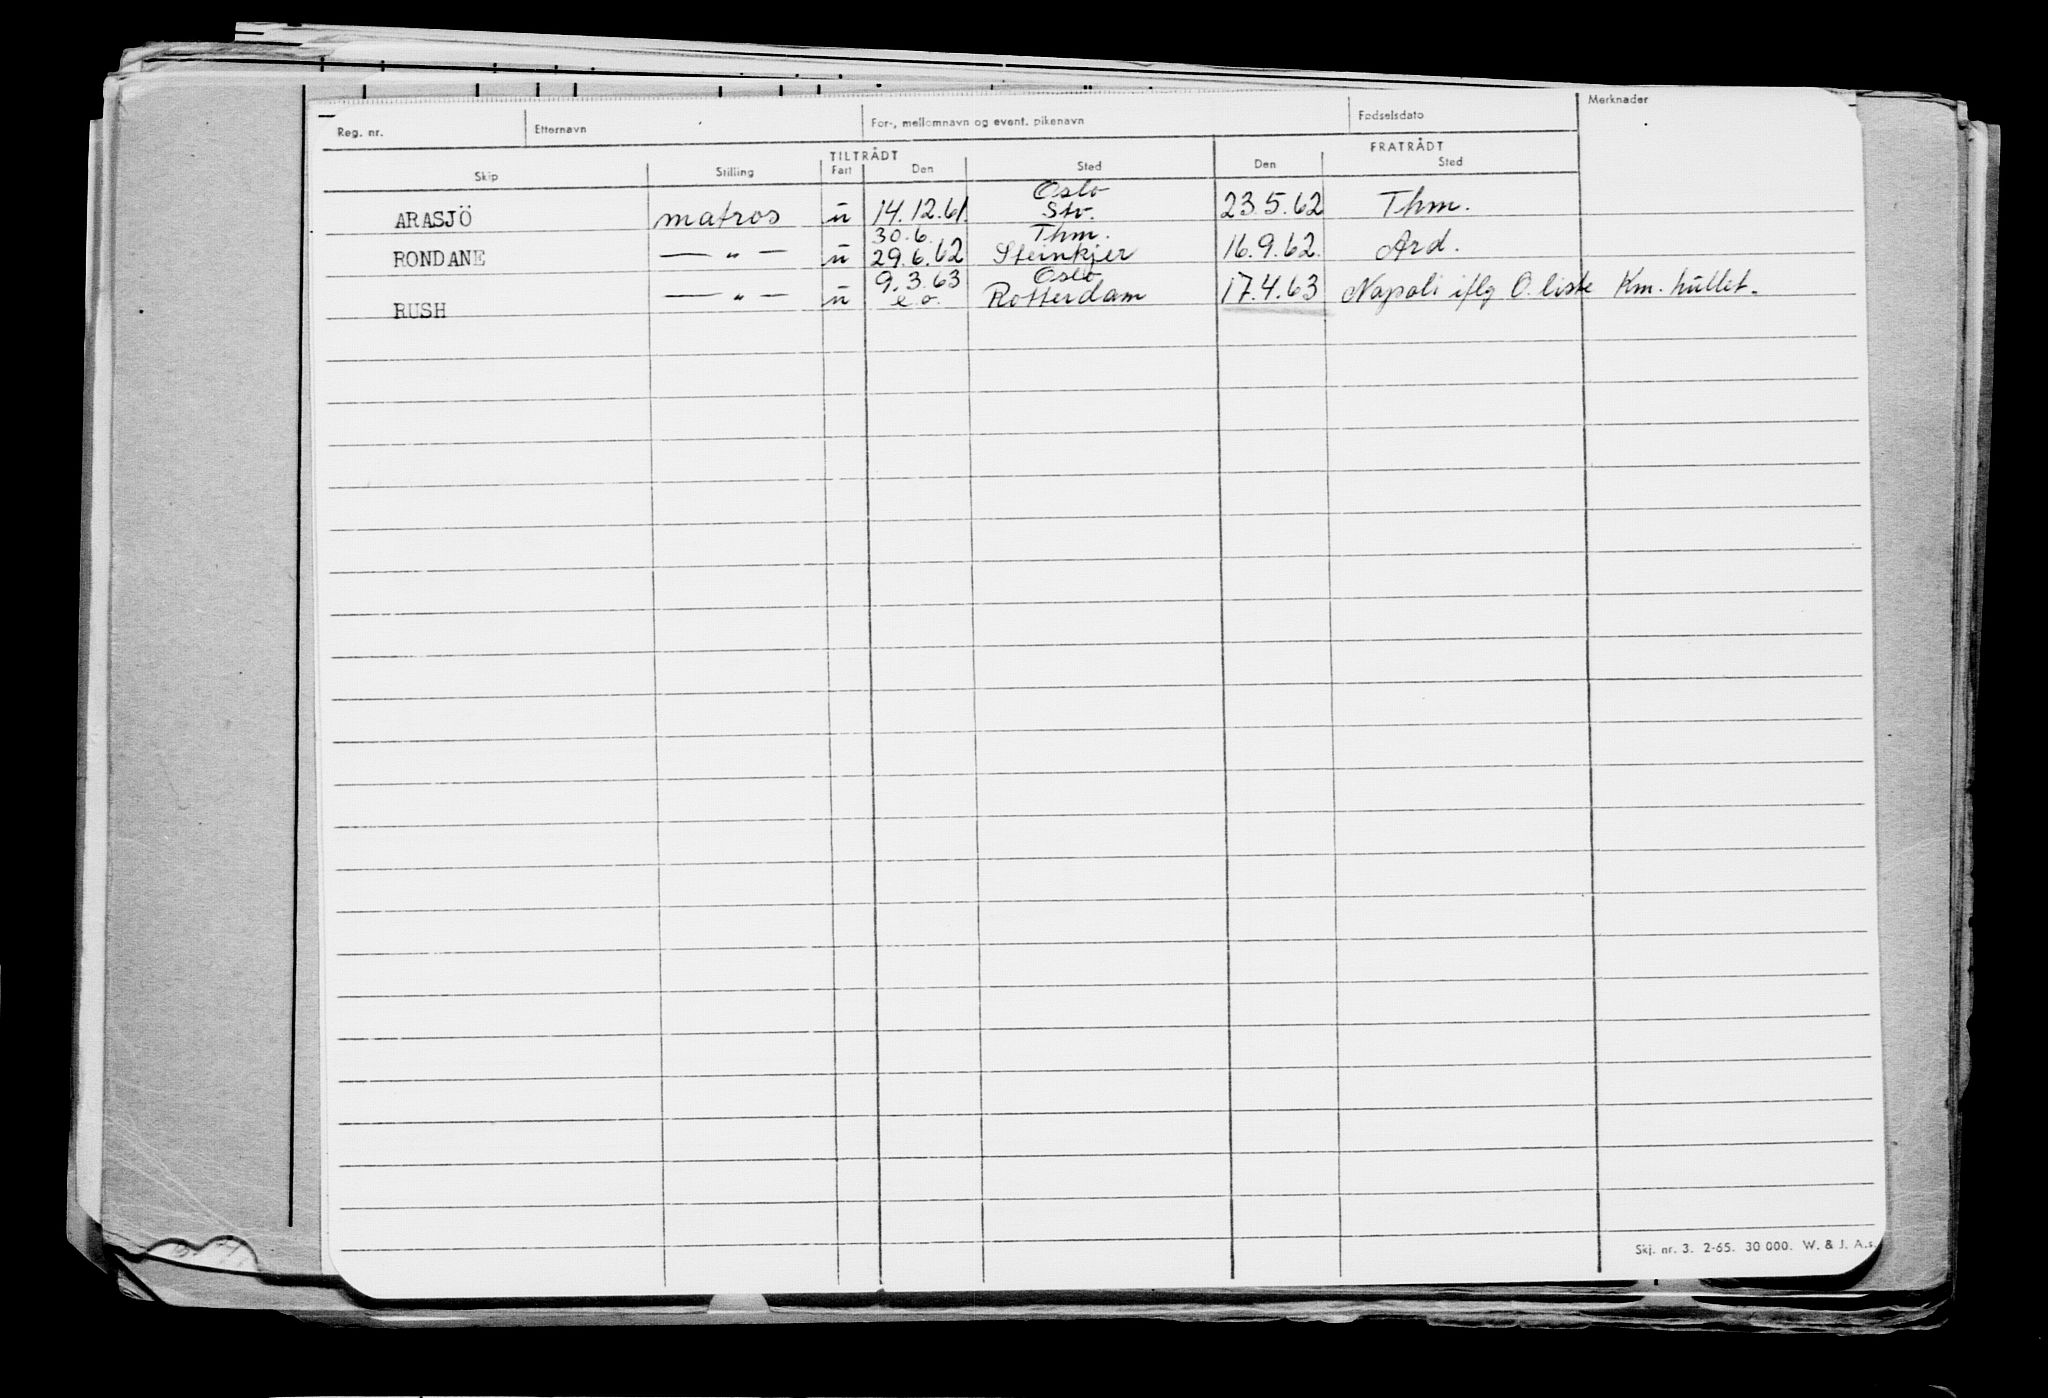 Reg. nr. Etternavn For-, mellomnavn og event. pikenavn Fødselsdato Merknader
TILTRÅDT FRATRÅDT
Skip Stilling Fart Den Sted Den Sted
Oslo
ARASJÖ matros u 14.12.61. Stv. 23.5.62 Thm.
30.6. Thm.
RONDANE — " — u 29.6.62 Steinkjer 16.9.62. Ard.
9.3.63 Oslo
RUSH — " — u e.o. Rotterdam 17.4.63 Napoli iflg O.liste Km. hullet.
Skj. nr. 3. 2-65. 30 000. W. & J. A.s.